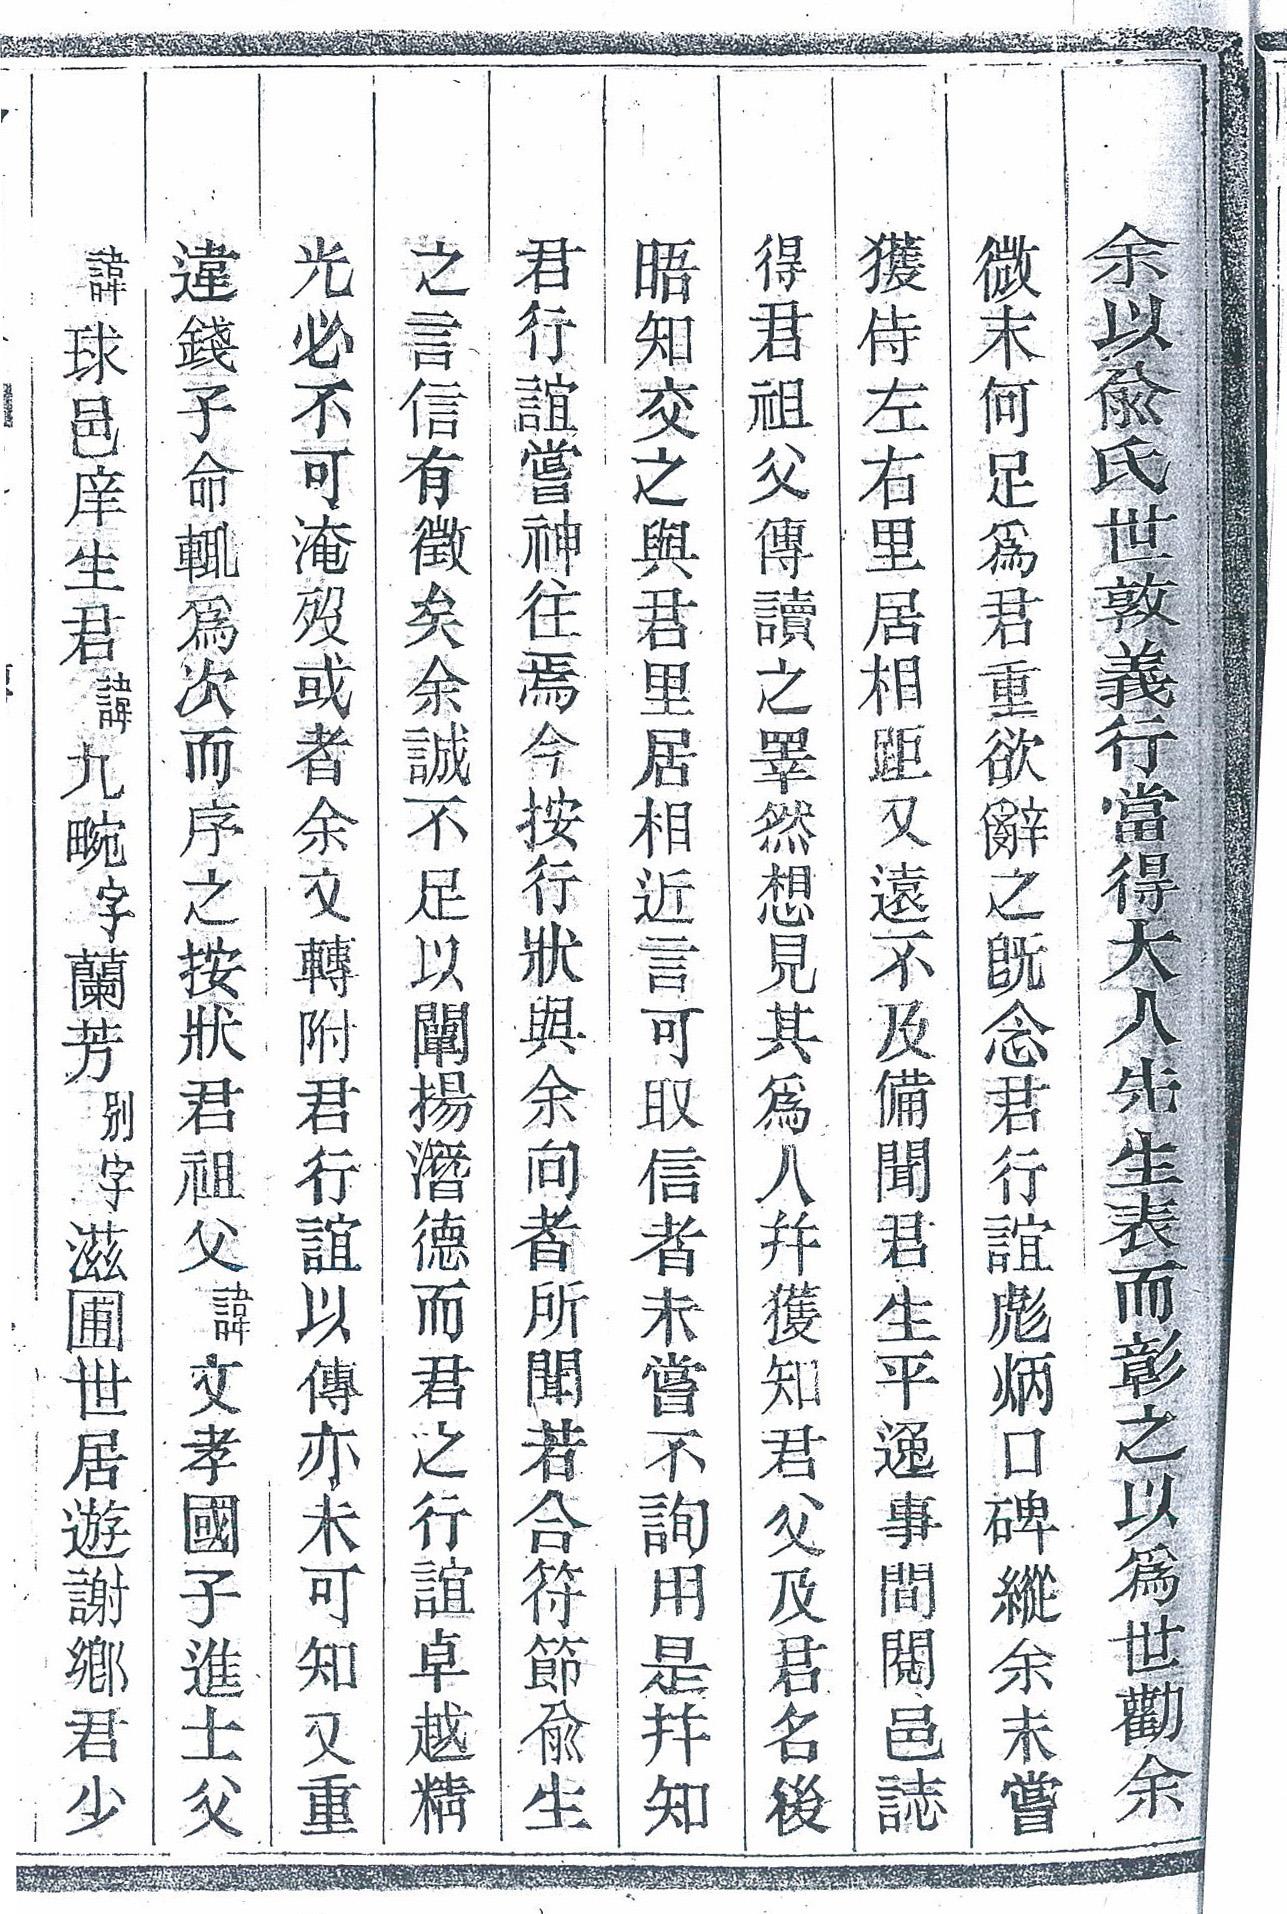 余以兪氏世敦義行當得大人先生表而彰之以爲世勸余
微末何足爲君重欲辭之旣念君行誼彪炳口碑縱余未嘗
獲侍左右里居相距又遠不及備聞君生平逸事間閱邑誌
得君祖父傳讀之睪然想見其爲人幷獲知君父及君名後
晤知交之與君里居相近言可取信者未嘗不詢用是幷知
君行誼嘗神往焉今按行狀與余向者所聞若合符節兪生
之言信有徵矣余誠不足以闡揚潛德而君之行誼卓越精
光必不可淹歿或者余文轉附君行誼以傳亦未可知又重
違錢子命輒爲次而序之按狀君祖父諱文孝國子進士父
諱球邑庠生君諱九畹字蘭芳別字滋圃世居遊謝鄉君少